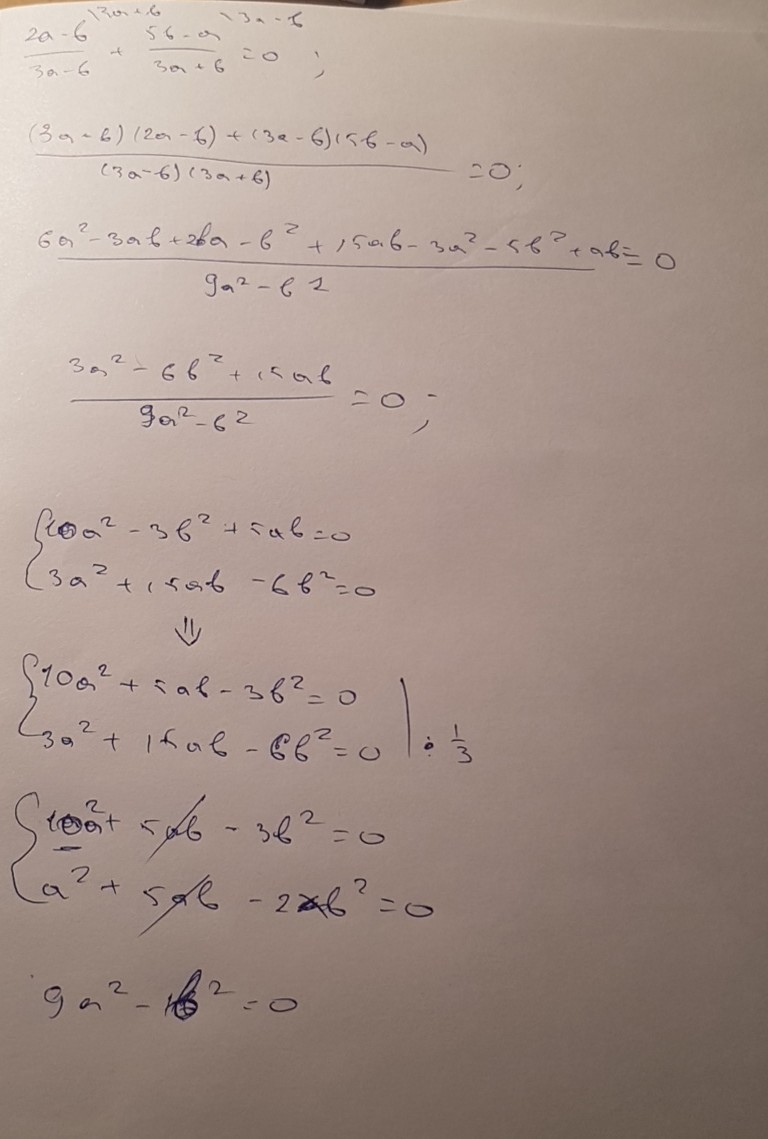 \3a+b \3a-b
(2a-b)/(3a-b) + (5b-a)/(3a+b) =0 ;
((3a+b)(2a-b)+(3a-b)(5b-a))/((3a-b)(3a+b)) =0;
(6a²-3ab+2ba-b²+15ab-3a²-5b²+ab)/(9a²-b²) =0
(3a²-6b²+15ab)/(9a²-b²) =0;
{10a²-3b²+5ab=0
{3a²+15ab-6b²=0
⇓
{10a²+5ab-3b²=0
{3a²+15ab-6b²=0 | : 1/3
{10a²+5ab-3b²=0
{a²+5ab-2b²=0
9a²-b²=0